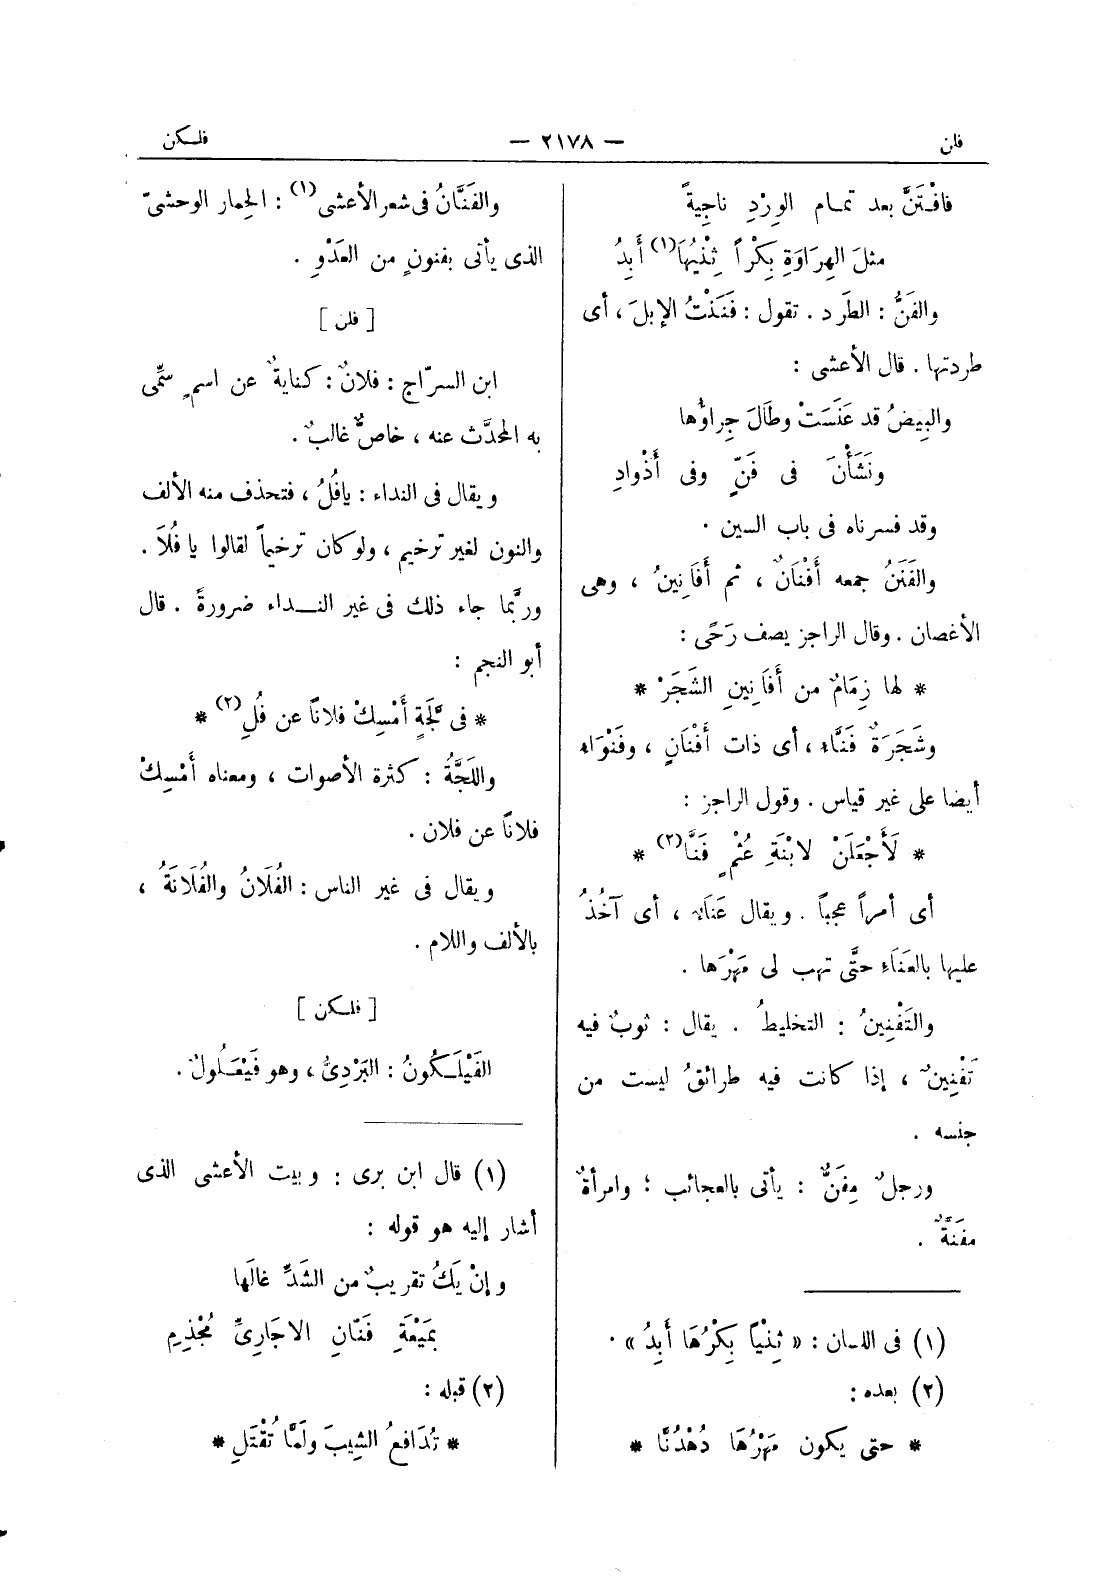 فلن
— ٢١٧٨ —
فلكن
فافْتَنَّ بعد تمام الوِرْدِ ناجِيةً
مثلَ الهِرَاوَةِ بِكْراً ثِنْيُهَا(١) أَبِدُ
والفَنُّ : الطَرد . تقول : فَنَنْتُ الإبلَ ، أى
طردتها . قال الأعشى :
والبِيضُ قد عَنَسَتْ وطَالَ جِراؤُها
ونَشَأْنَ فى فَنٍّ وفى أَذْوادِ
وقد فسرناه فى باب السين .
والفَنَنُ جمعه أَفْنَانٌ ، ثم أَفَانِينُ ، وهى
الأغصان . وقال الراجز يصف رَحًى :
* لها زِمَامٌ من أَفَانِينِ الشَجَرْ *
وشَجَرَةٌ فَنَّاء ، أى ذات أَفْنَانٍ ، وفَنْوَاء
أيضا على غير قياس . وقول الراجز :
* لَأَجْعَلَنْ لابْنَةِ عُثْمٍ فَنَّا(٢) *
أى أمراً عجباً . ويقال عَنَاء ، أى آخُذُ
عليها بالعَنَاءِ حتَّى تهب لى مَهْرَها .
والتَفْنِينُ : التخليطُ . يقال : ثوبٌ فيه
تَفْنِينٌ ، إذا كانت فيه طرائقُ ليست من
جنسه .
ورجلٌ مِفَنٌّ : يأتى بالعجائب ؛ وامرأةٌ
مِفَنَّةٌ .
(١) فى اللسان : « ثِنْياً بِكْرُهَا أَبِدُ » .
(٢) بعده :
* حتى يكون مَهْرُهَا دُهْدُنَّا *
والفَنَّانُ فى شعر الأعشى(١) : الحِمار الوحشىّ
الذى يأتى بفنونٍ من العَدْوِ .
[ فلن ]
ابن السرّاج : فلانٌ : كنايةٌ عن اسمٍ سمِّى
به المحدَّث عنه ، خاصٌّ غالبٌ .
ويقال فى النداء : يافُلُ ، فتحذف منه الألف
والنون لغير ترخيم ، ولو كان ترخيماً لقالوا يا فُلَا .
وربَّما جاء ذلك فى غير النداء ضرورةً . قال
أبو النجم :
* فى لَجَّةٍ أَمْسِكْ فلاناً عن فُلِ(٢) *
واللَجَّةُ : كثرة الأصوات ، ومعناه أَمْسِكْ
فلاناً عن فلان .
ويقال فى غير الناس : الفُلَانُ والفُلَانَةُ ،
بالألف واللام .
[ فلكن ]
الفَيْلَكُونُ : البَرْدِىُّ ، وهو فَيْعَلُولٌ .
(١) قال ابن برى : وبيت الأعشى الذى
أشار إليه هو قوله :
وإنْ يَكُ تقريبٌ من الشَدِّ غالَها
بمَيْعَةِ فَنّانِ الاجَارِىِّ مُجْذِمِ
(٢) قبله :
* تُدَافعُ الشِيبَ ولَمَّا تُقْتَلِ *